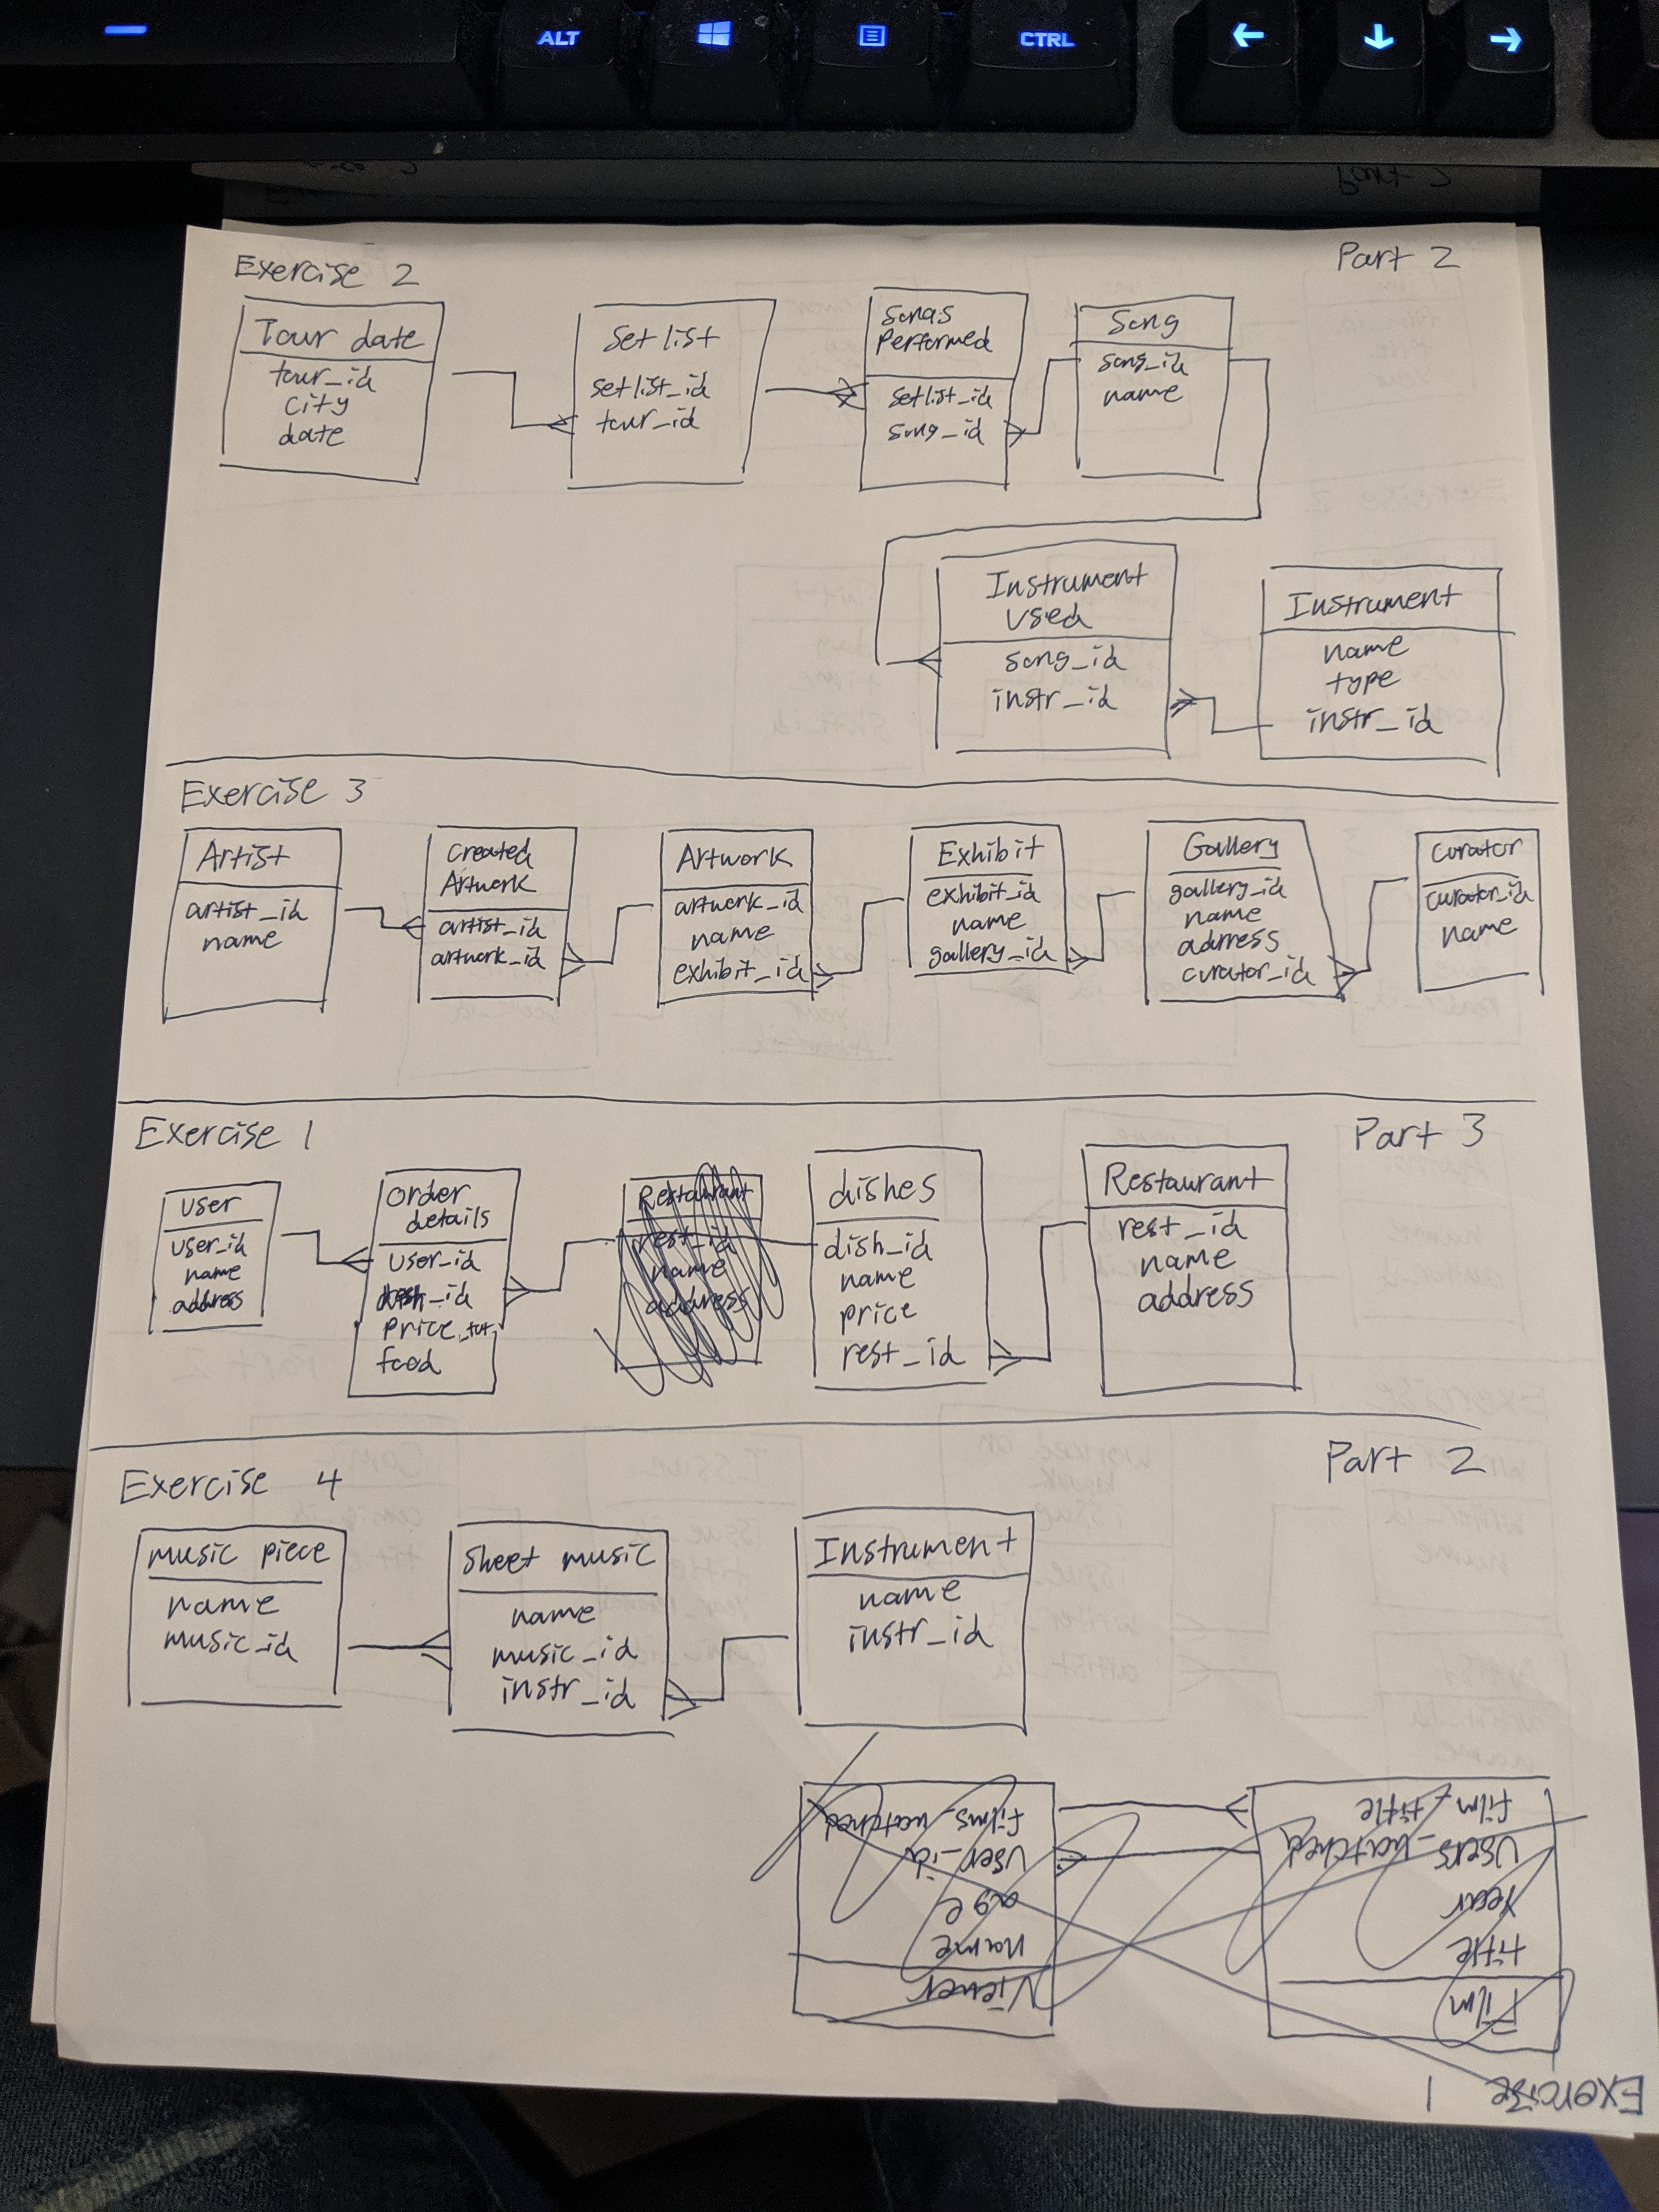 ALT
CTRL
Exercise 2
Part 2
Tour date
tour_id
city
date
Set list
setlist_id
tour_id
Songs
Performed
setlist_id
song_id
Song
song_id
name
Instrument
Used
song_id
instr_id
Instrument
name
type
instr_id
Exercise 3
Artist
artist_id
name
Created
Artwork
artist_id
artwork_id
Artwork
artwork_id
name
exhibit_id
Exhibit
exhibit_id
name
gallery_id
Gallery
gallery_id
name
adrress
curator_id
Curator
curator_id
name
Exercise 1
Part 3
User
user_id
name
address
Order
details
user_id
dish_id
price_tot
food
Restaurant
rest_id
name
address
dishes
dish_id
name
price
rest_id
Restaurant
rest_id
name
address
Exercise 4
Part 2
music piece
name
music_id
Sheet music
name
music_id
instr_id
Instrument
name
instr_id
Exercise 1
Film
title
Year
Users_watched
film_title
Viewer
name
age
user_id
films_watched